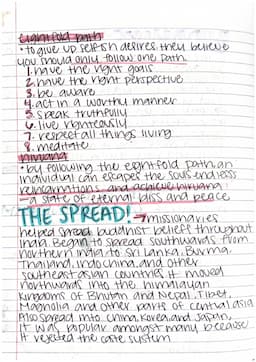 Eightfold path
• to give up selfish desires they believe
you should only follow one path.
1. have the right goals
2. have the right perspective
3. be aware
4. act in a worthy manner
5. speak truthfully
6. live righteously
7. respect all things living
8. meditate
nirvana
• by following the eightfold path an
individual can escapes the souls endless
reincarnations and achieve nirvana
- a state of eternal bliss and peace
THE SPREAD! → missionaries
helped spread buddhist beliefs throughout
India. Began to spread southwards from
northern india to Sri Lanka, Burma,
Thailand, indochina and other
southeast asian countries it moved
northwards into the himalayan
kingdoms of Bhutan and Nepal. Tibet,
Magnolia and other parts of central asia
also spread into china, Korea, and Japan,
it was papular amongst many because
it rejected the caste system